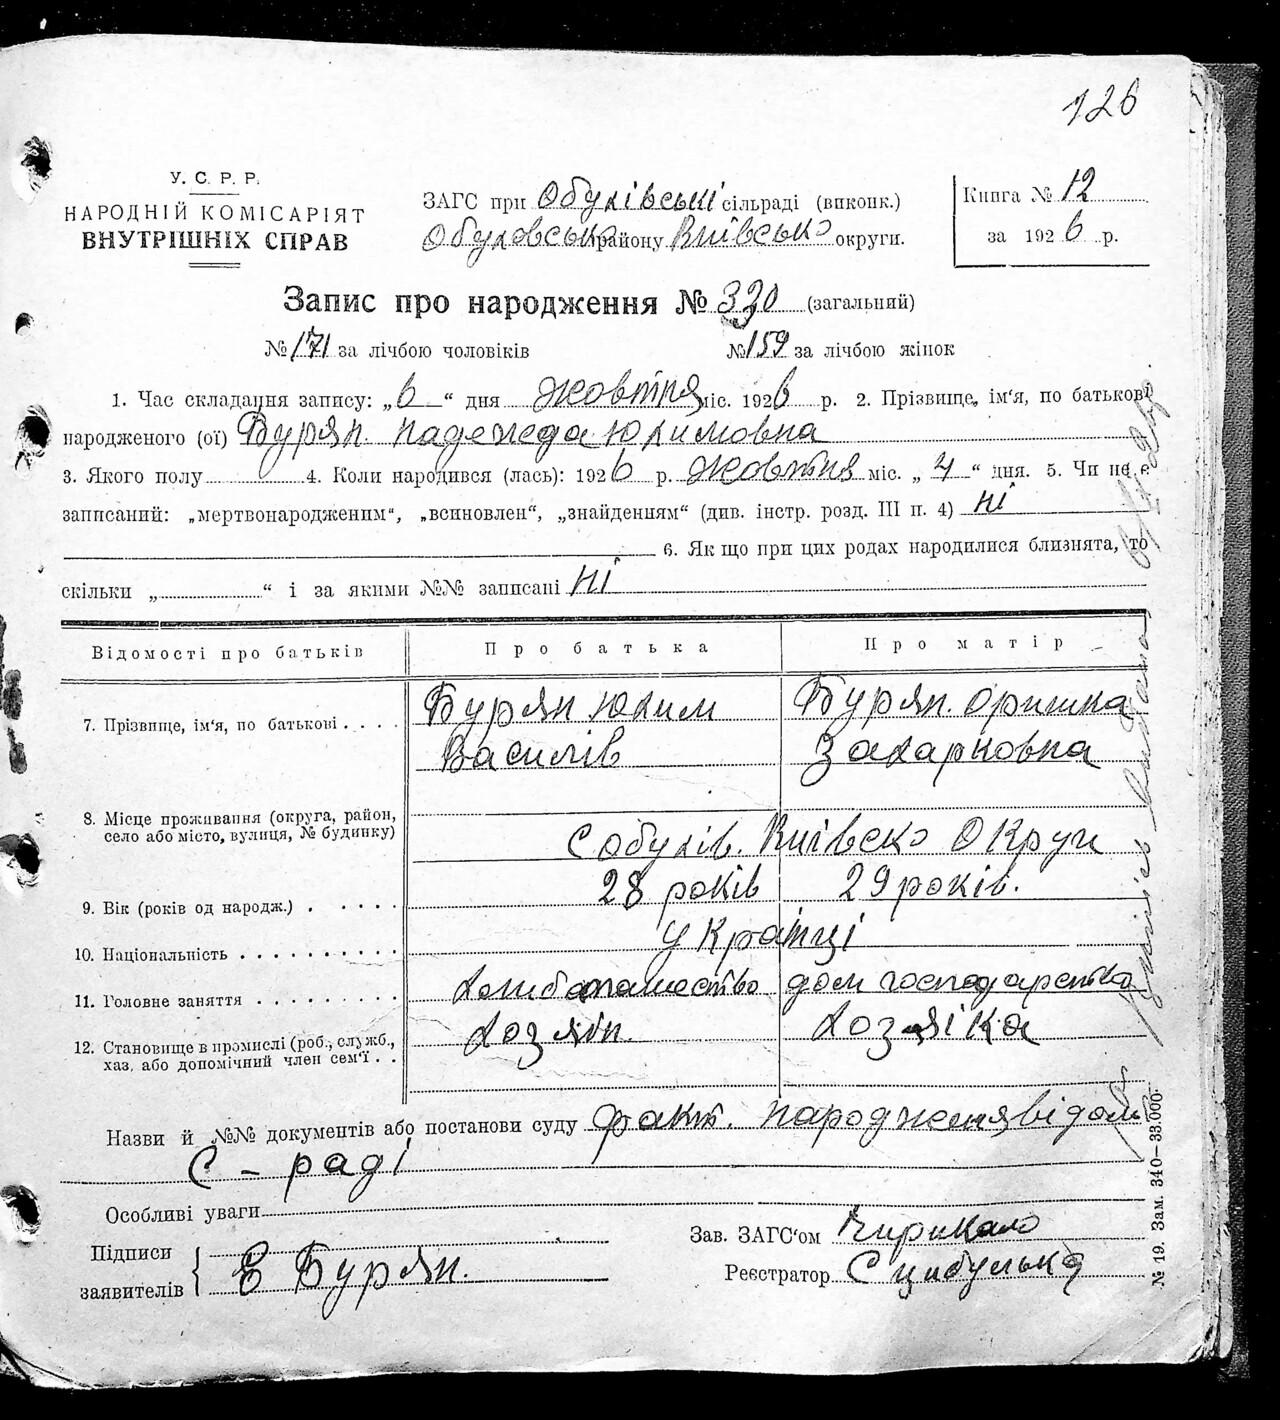 126
У. С. Р. Р.
НАРОДНІЙ КОМІСАРІЯТ
ВНУТРІШНІХ СПРАВ
ЗАГС при Обухівські сільраді (виконк.)
Обуховсько району Київсько округи.
Книга № 12
за 1926 р.
Запис про народження № 330 (загальний)
№ 171 за лічбою чоловіків № 159 за лічбою жінок
1. Час складання запису: „6“ дня жовтня міс. 1926 р. 2. Прізвище, ім'я, по батькові
народженого (ої) Бурян Надежеда Юхимовна
3. Якого полу 4. Коли народився (лась): 1926 р. жовтня міс. „4“ дня. 5. Чи не є
записаний: „мертвонародженим“, „всиновлен“, „знайденням“ (див. інстр. розд. III п. 4) ні
6. Як що при цих родах народилися близнята, то
скільки „ “ і за якими №№ записані ні
Відомості про батьків Про батька Про матір
7. Прізвище, ім'я, по батькові . . . . Бурян Юхим Бурян. Оришка
Василів Захарковна
8. Місце проживання (округа, район,
село або місто, вулиця, № будинку)
С Обухів. Київско Округи
9. Вік (років од народж.) . . . . . 28 років 29 років.
10. Національність . . . . . . . . . . Українці
11. Головне заняття . . . . . . . . . хлибопашество дом господарство
12. Становище в промислі (роб., служб.,
хаз. або допомічний член сем'ї . .
хозяін. хозяіка
Назви й №№ документів або постанови суду факт. народженя відом
С - раді
Особливі уваги
Підписи
заявителів
Е Бурян.
Зав. ЗАГС'ом Чирикало
Реєстратор С Цибулька
№ 19. Зам. 340—33.000.